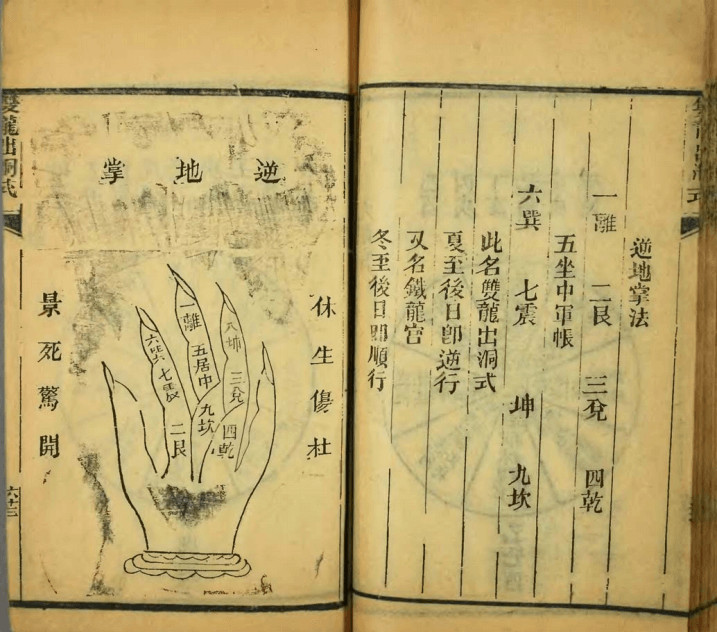 逆地掌法
一離 二艮 三兌 四乾
五坐中軍帳
六巽 七震 坤 九坎
此名雙龍出洞式
夏至後日卽逆行
又名鐵龍宫
冬至後日卽順行
逆地掌
休生傷杜
八坤 三兌 四乾
一離 五居中 九坎
六巽 七震 二艮
景死驚開
雙龍出洞式